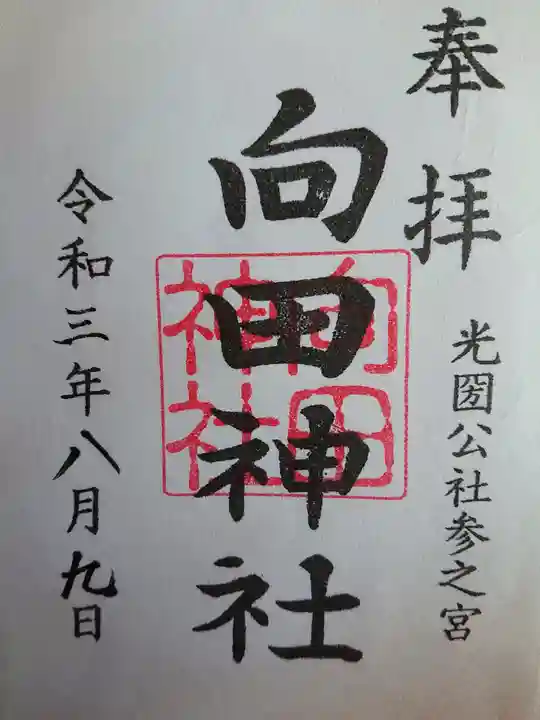 奉拝
光圀公社参之宮
向田神社
向田神社
令和三年八月九日